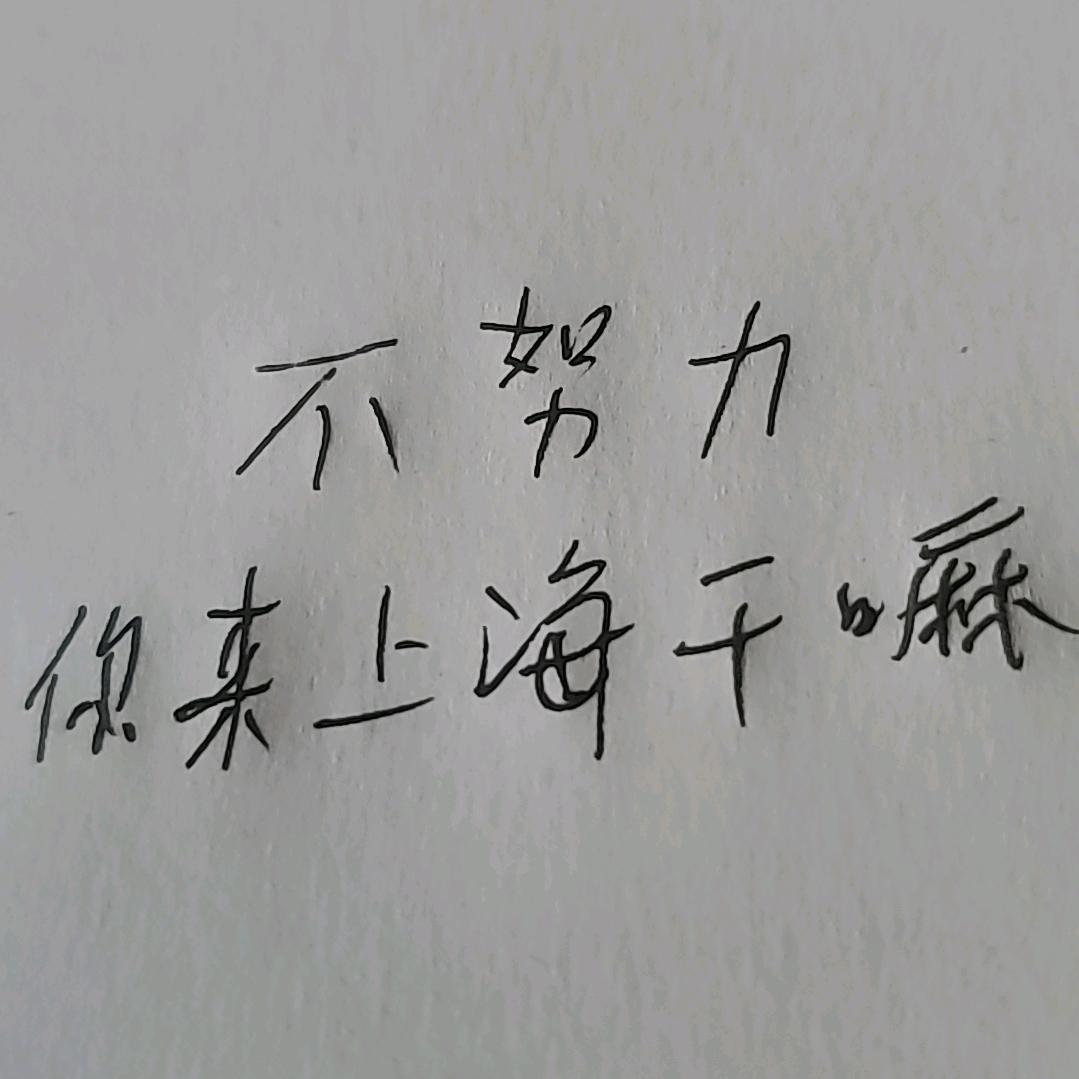 不努力
你来上海干嘛